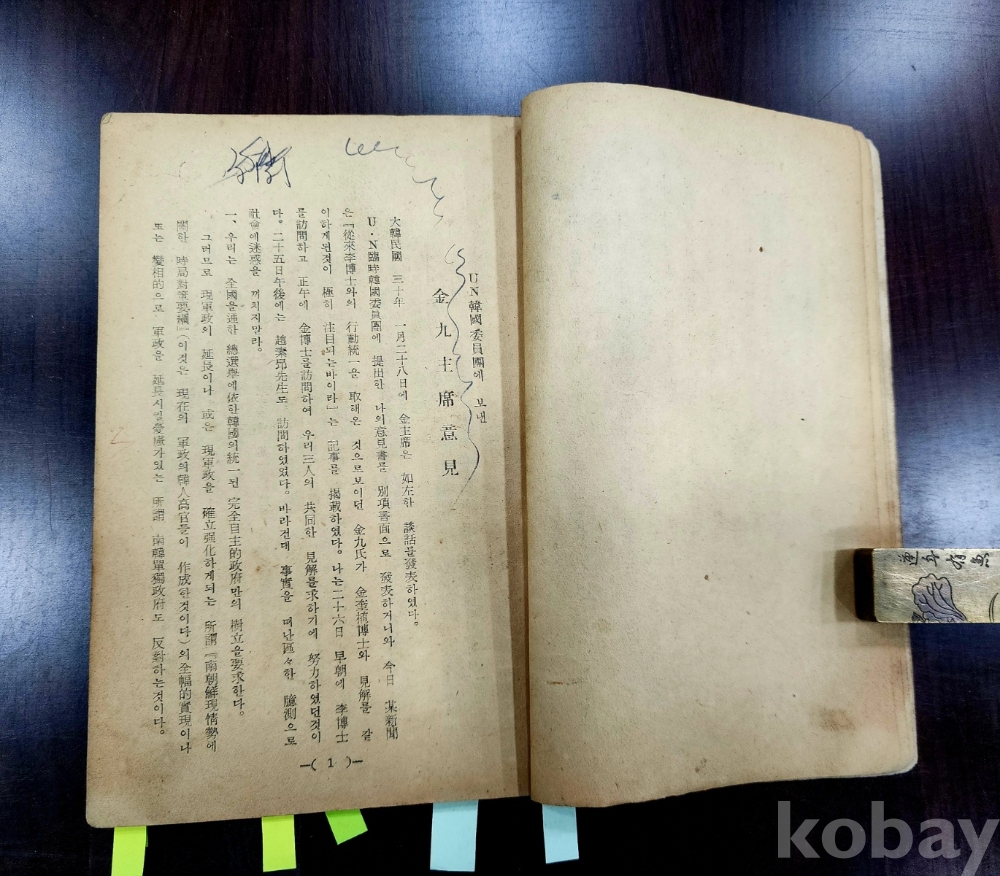 UN韓國委員團에 보낸
金九主席意見
大韓民國 三十年 一月二十八日에 金主席은 如左한 談話를發表하였다.
U·N臨時韓國委員團에 提出한 나의意見書를 別項書面으로 發表하거니와 今日 某新聞
은『從來李博士와의 行動統一을 取해온 것으로보이던 金九氏가 金奎植博士와 見解를 같
이하게된것이 極히 注目되는바이라』는 記事를 揭載하였다. 나는二十六日 早朝에 李博士
를訪問하고 正午에 金博士를訪問하여 우리三人의 共同한 見解를求하기에 努力하였던것이
다. 二十五日午後에는 趙素昻先生도 訪問하였었다. 바라건데 事實을 떠난區々한 臆測으로
社會에迷惑을 끼치지말라.
一、우리는 全國을通한 總選擧에依한韓國의統一된 完全自主的政府만의 樹立을要求한다.
그러므로 現軍政의 延長이나 或은 現軍政을 確立强化하게되는 所謂『南朝鮮現情勢에
關한 時局對策要綱』(이것은 現在의 軍政의韓人高官들이 作成한것이다)의全幅的實現이나
또는 變相的으로 軍政을 延長시킬憂慮가있는 所謂 南韓單獨政府도 反對하는것이다.
—( 1 )—
kobay